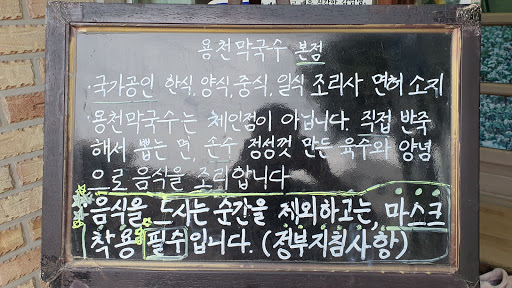 용천막국수 본점
· 국가공인 한식, 양식, 중식, 일식 조리사 면허 소지
· 용천막국수는 체인점이 아닙니다. 직접 반죽
해서 뽑는 면, 손수 정성껏 만든 육수와 양념
으로 음식을 조리합니다
음식을 드시는 순간을 제외하고는, 마스크
착용 필수입니다. (정부지침사항)